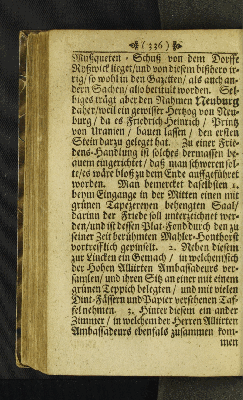 (336)
Mußqueten-Schuß von dem Dorffe
Ryßwick lieget/und von diesem bißhero ir-
rig/ so wohl in den Gazetten/ als auch an-
dern Sachen/ also betitult worden. Sel-
biges trägt aber den Nahmen Neuburg
daher/weil ein gewisser Hertzog von Neu-
burg/ da es Friedrich-Heinrich/ Printz
von Uranien/ bauen lassen/ den ersten
Stein darzu geleget hat. Zu einer Frie-
dens-Handlung ist solches dermassen be-
quem eingerichtet/ daß man schweren sol-
te/es wäre bloß zu dem Ende auffgeführet
worden. Man bemercket daselbsten 1.
beym Eingange in der Mitten einen mit
grünen Tapezereyen behengten Saal/
darinn der Friede soll unterzeichnet wer-
den/und ist dessen Plat-Fond durch den zu
seiner Zeit berühmten Mahler-Honthorst
vortrefflich gemselt. 2. Neben diesem
zur Lincken ein Gemach/ in welchem sich
der Hohen Alliirten Ambassadeurs ver-
samlen/ und ihren Sitz an einer mit einem
grünen Teppich belegten/ und mit vielen
Dint-Fässern und Papier versehenen Taf-
fel nehmen. 3. Hinter diesem ein ander
Zimmer/ in welchem der Herren Alliirten
Ambassadeurs ebenfals zusammen kom-
men